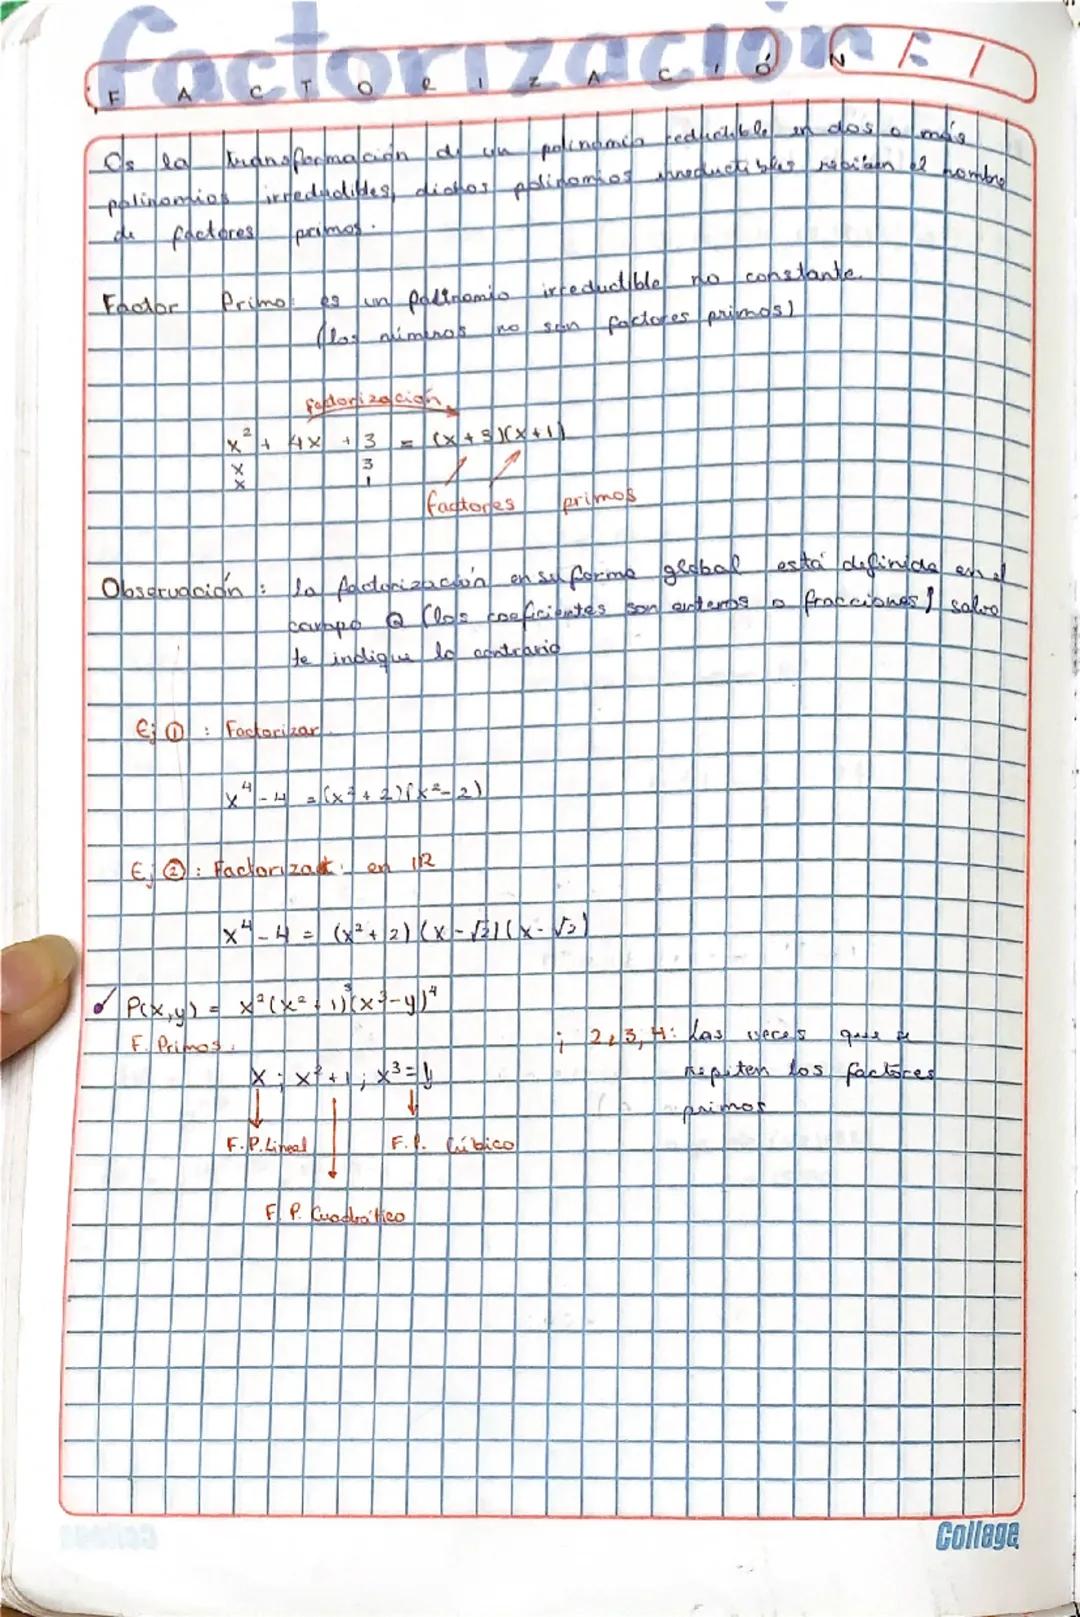 factorización:
F A C T O R I Z A C I Ó N
Es la transformación de un polinomio reductible en dos o más
polinomios irreductibles, dichos polinomios irreductibles reciben el nombre
de factores primos.
Factor Primo: es un polinomio irreductible no constante.
(los números no son factores primos)
Factorización
x² + 4x + 3 = (x+3)(x+1)
x 3
x 1
factores primos
Observación: la factorización en su forma global está definida en el
campo Q (los coeficientes son enteros o fracciones) salvo
te indique lo contrario
Ej ①: Factorizar
x⁴-4 = (x²+2)(x²-2)
Ej ②: Factorizar en IR
x⁴-4 = (x²+2)(x-√2)(x-√2)
P(x,y) = x²(x²+1)³(x³-y)⁴
F. Primos: ; 2,3,4: Las veces que se
x ; x²+1 ; x³=y repiten los factores
primos
F.P. Lineal F.P. Cúbico
F.P. Cuadrático
College